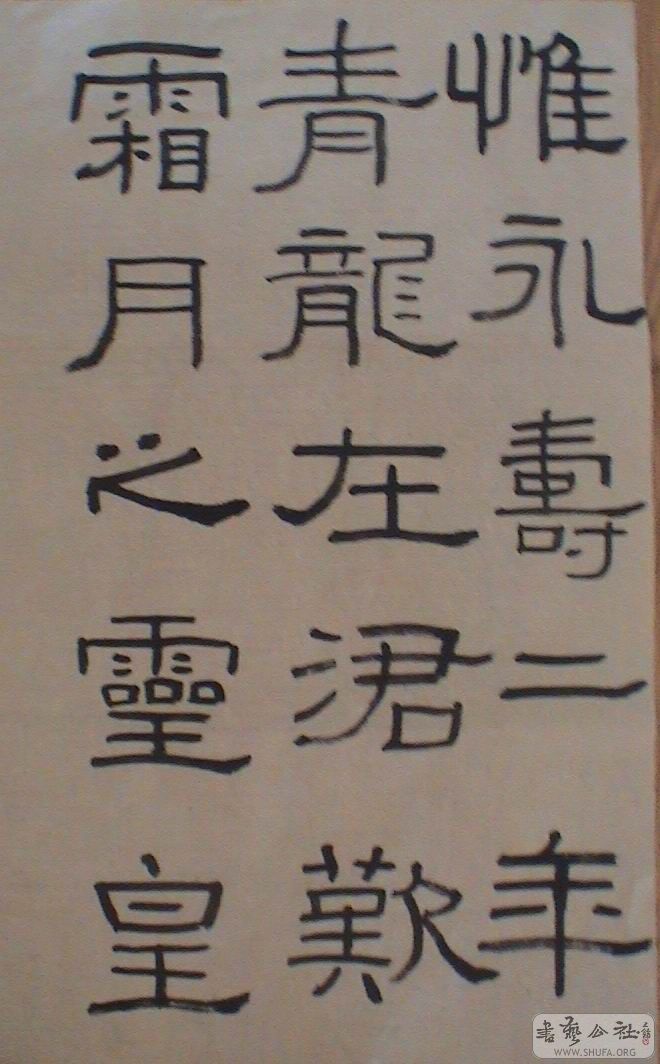 惟永壽二年
青龍在涒歎
霜月之靈皇
書藝公社
WWW.SHUFA.ORG